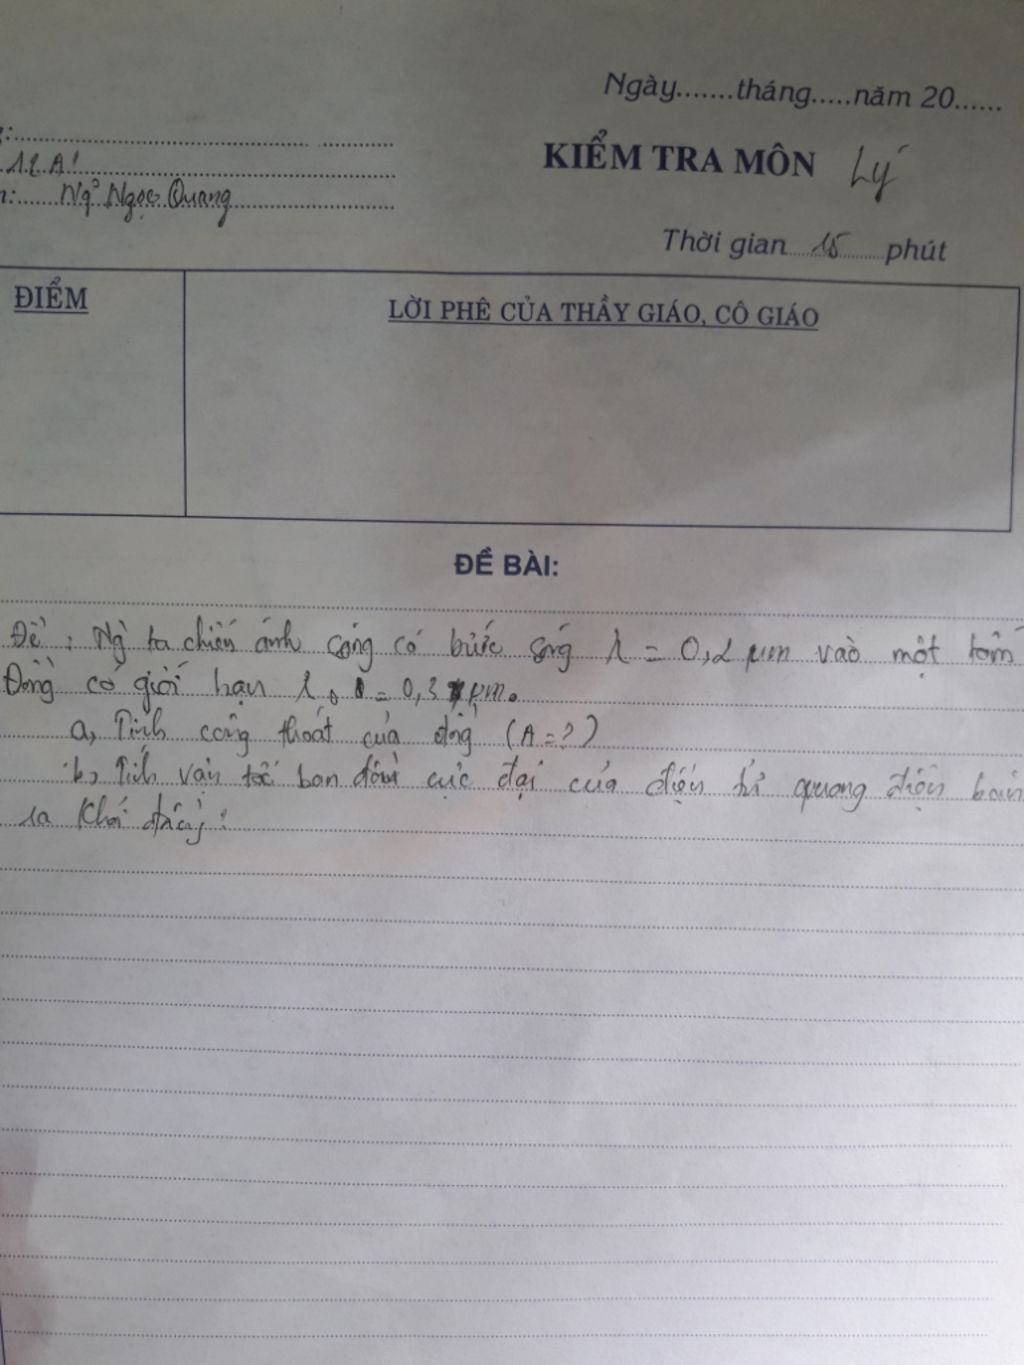 Ngày.......tháng.....năm 20......
:
12A1
KIỂM TRA MÔN Lý
n: Ngô Ngọc Quang
Thời gian 15 phút
ĐIỂM
LỜI PHÊ CỦA THẦY GIÁO, CÔ GIÁO
ĐỀ BÀI:
Đề: Ng` ta chiếu ánh sáng có bước sóng λ = 0,2 μm vào một tấm
Đồng có giới hạn λ₀ = 0,3 μm.
a, Tính công thoát của đồng (A=?)
b, Tính vận tốc ban đầu cực đại của điện tử quang điện bắn
ra khỏi đồng?